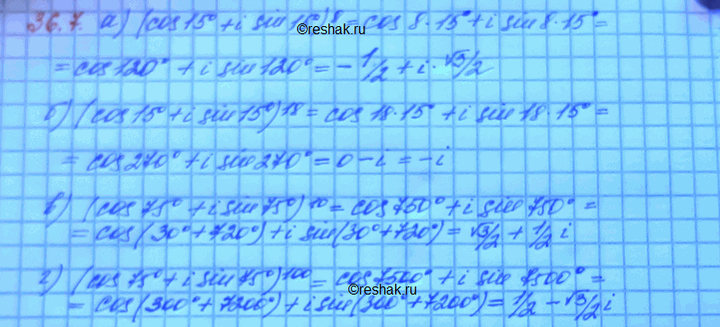 36.7. а) (cos 15° + i sin 15°)⁸ = cos 8·15° + i sin 8·15° =
= cos 120° + i sin 120° = -1/2 + i·√3/2
б) (cos 15° + i sin 15°)¹⁸ = cos 18·15° + i sin 18·15° =
= cos 270° + i sin 270° = 0 - i = -i
в) (cos 75° + i sin 75°)¹⁰ = cos 750° + i sin 750° =
= cos(30° + 720°) + i sin(30° + 720°) = √3/2 + 1/2 i
г) (cos 75° + i sin 75°)¹⁰⁰ = cos 7500° + i sin 7500° =
= cos(300° + 7200°) + i sin(300° + 7200°) = 1/2 - √3/2 i
©reshak.ru
©reshak.ru